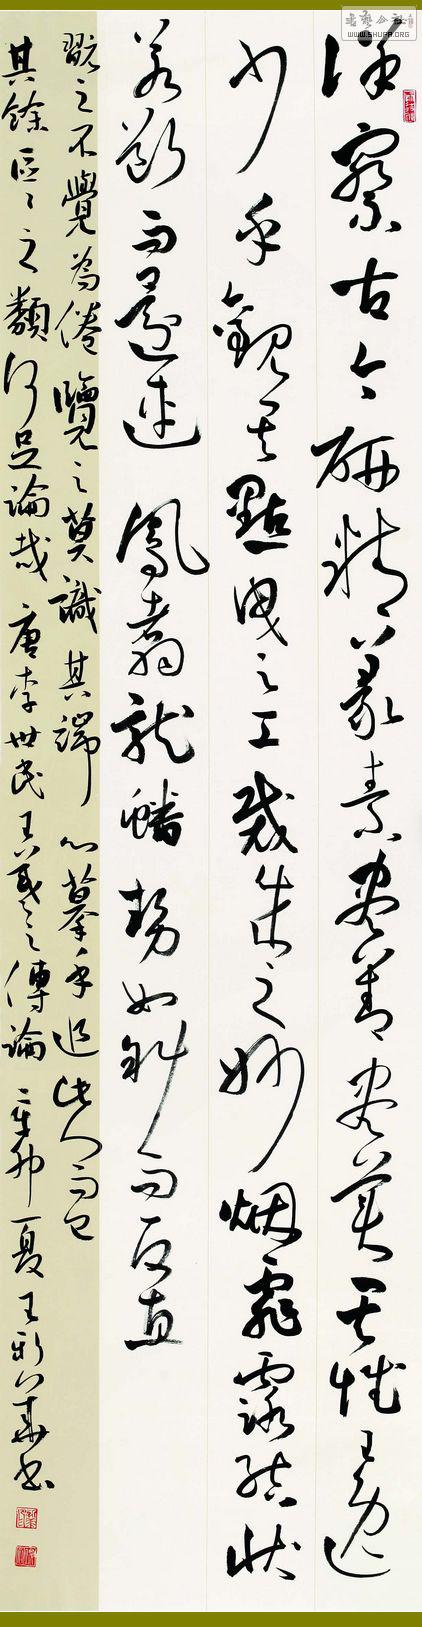 詳察古今研精篆素盡善盡美其惟王逸
少乎觀其點曳之工裁成之妙烟霏露結狀
若斷而還連鳳翥龍蟠勢如斜而反直
翫之不覺為倦覽之莫識其端心摹手追此人而已
其餘區々之類何足論哉 唐李世民王羲之傳論 辛卯夏王新華書
書藝公社
WWW.SHUFA.ORG